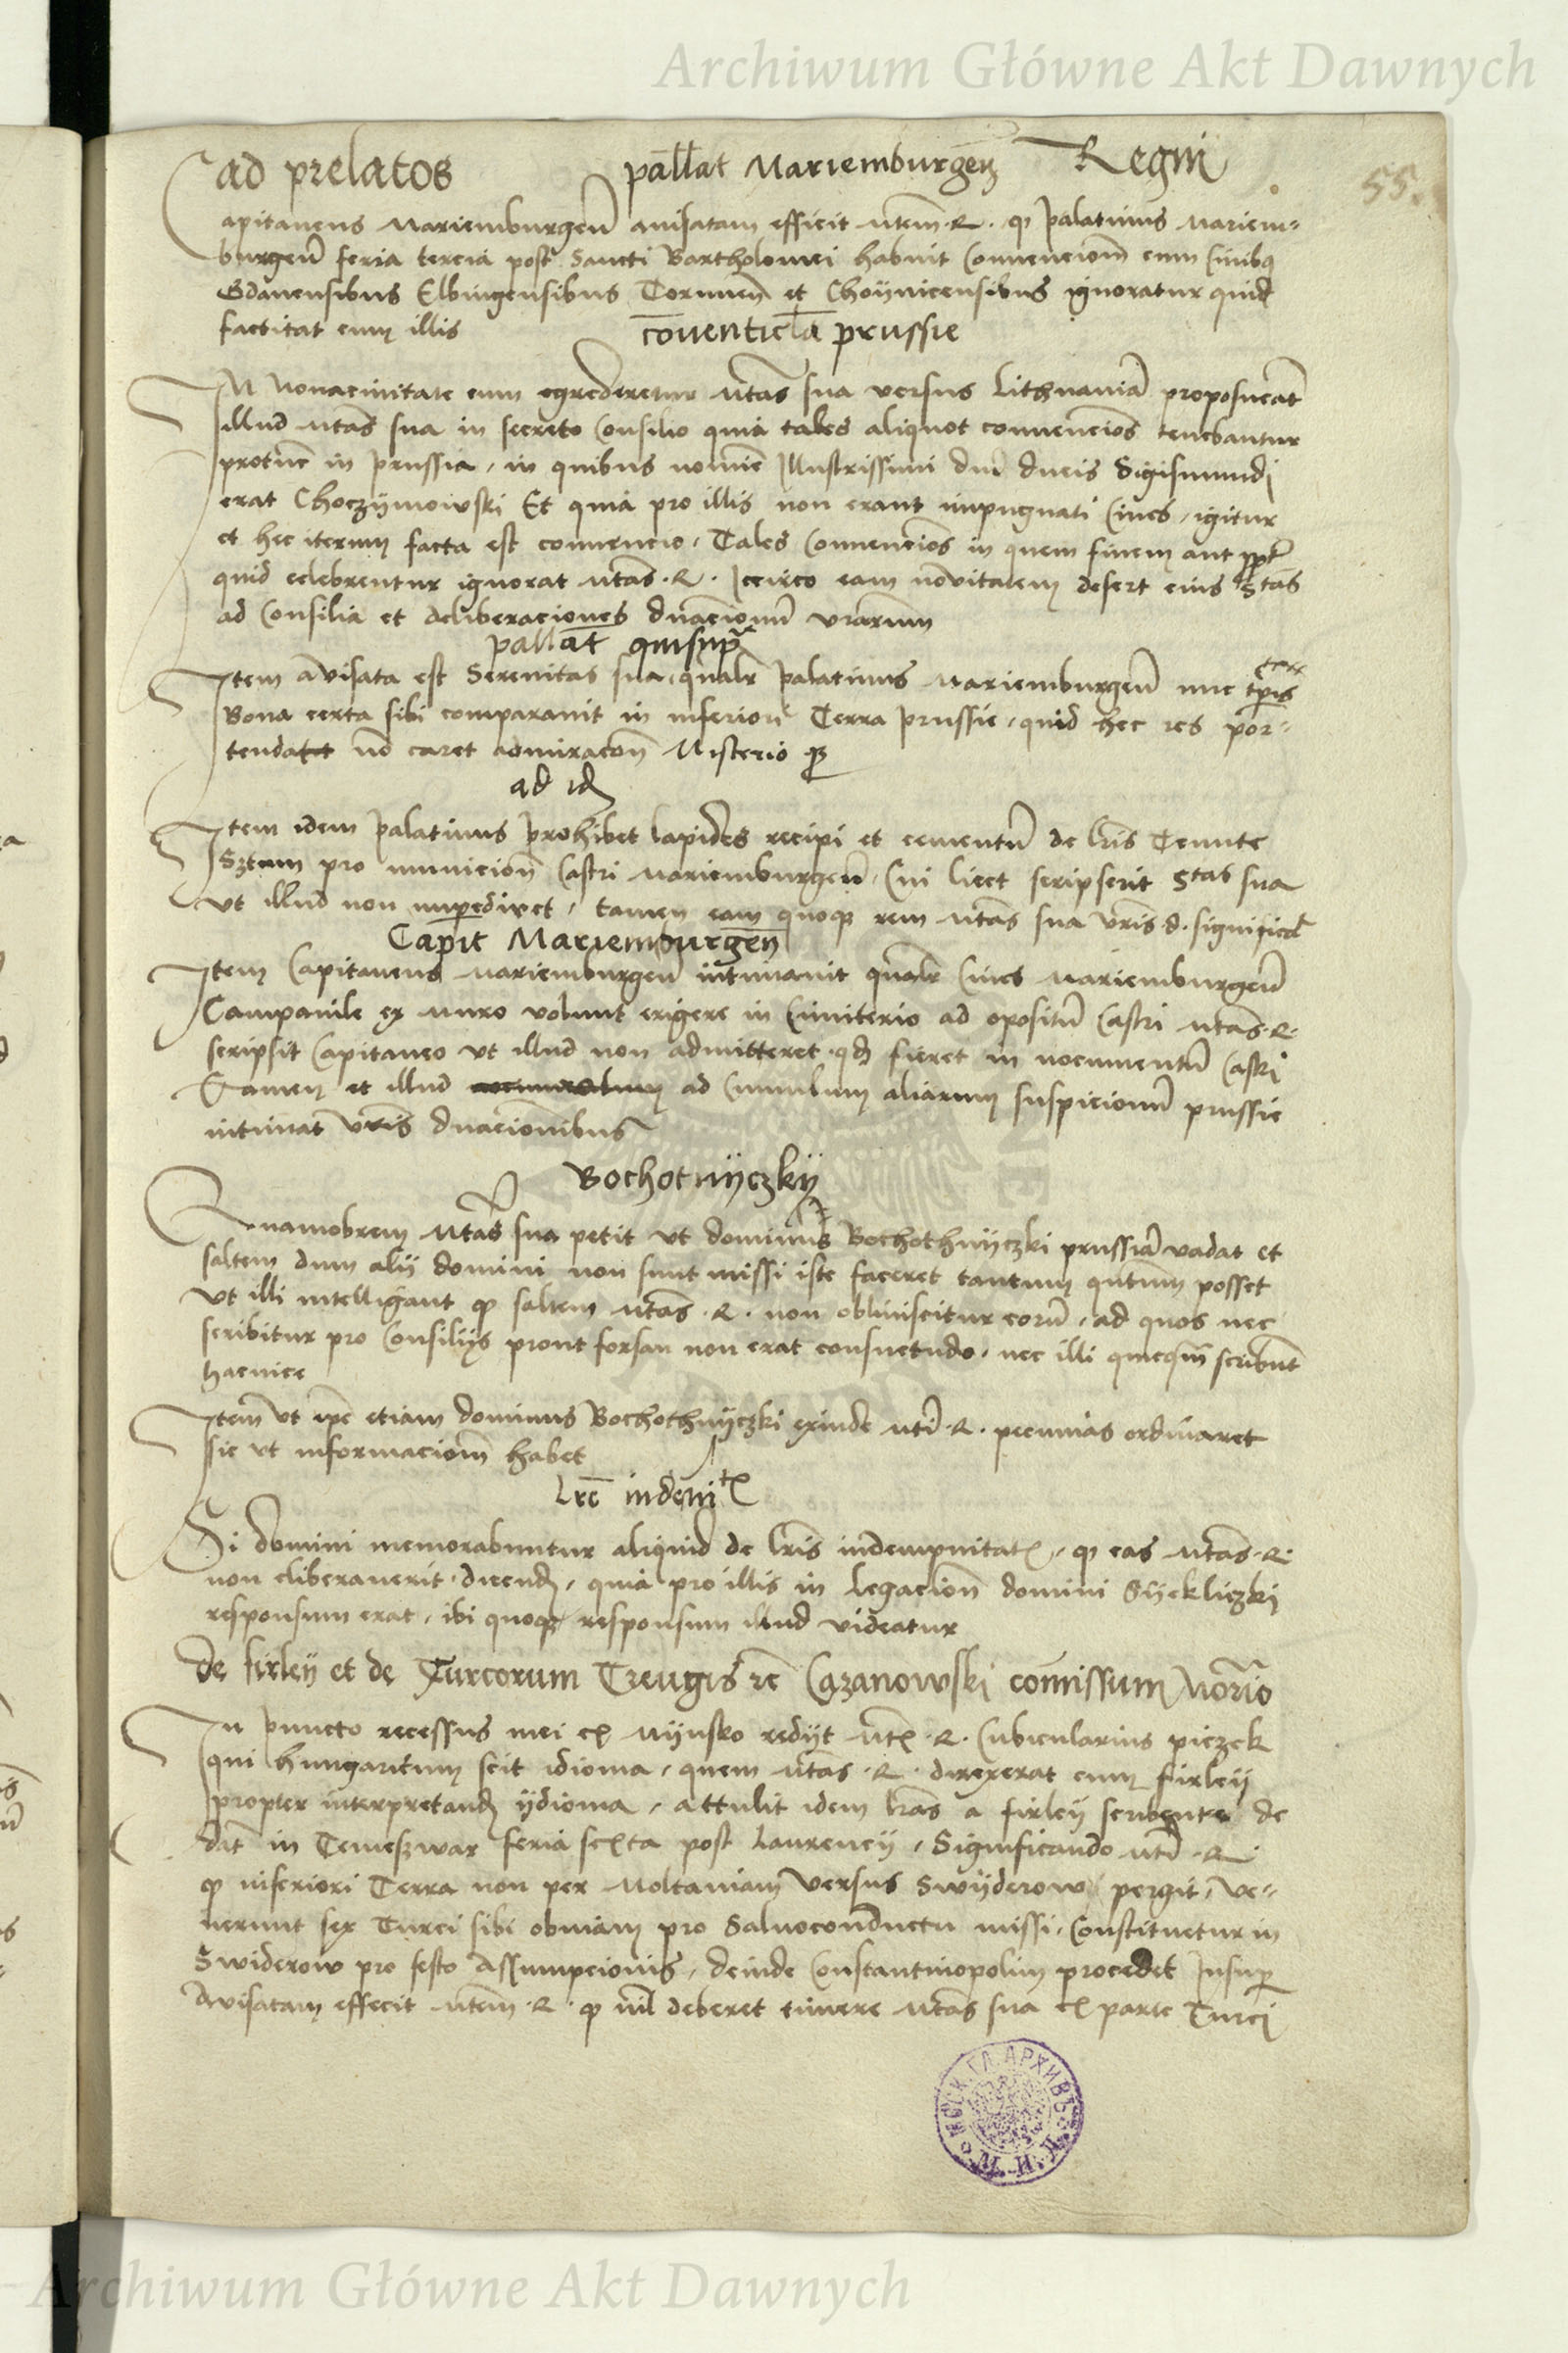 Archiwum Główne Akt Dawnych
ad prelatos pallat Mariemburgen Regni
55.
Capitaneus Mariemburgen avisatam efficit Mtem R. qz palatinus Mariem-
burgen feria tercia post Sancti Bartholomei habuit Convencionem cum Civibus
Gdanensibus Elbingensibus Torunen et Choynicensibus ignoratur quid
factitat cum illis
conventicla prussie
In Novacivitate cum egrederetur Mtas sua versus Lithuaniam proposuerat
illud Mtas sua in secreto Consilio quia tales aliquot convenciones tenebantur
protunc in prussia, in quibus nomine Illustrissimi dni ducis Sigismundi
erat Choczymowski Et quia pro illis non erant inpugnati Cives, igitur
et hec iterum facta est convencio, Tales Convenciones in quem finem aut propter
quid celebrentur ignorat Mtas R. Iccirco eam novitatem defert eius Stas
ad Consilia et deliberaciones dnacionum vrarum
pallat qui supra
Item avisata est Serenitas sua, qualr palatinus Mariemburgen nunc tpris
Bona certa sibi comparavit in inferiori Terra prussie, quid hec res por-
tendat no caret admiracone Misterio qz
ad id
Item idem palatinus prohibet lapides recipi et cementum de bonis Tenute
Sztum pro municione Castri Mariemburgen, Cui licet scripserit Stas sua
ut illud non impediret, tamen eam quoqz rem Mtas sua vris d. significat
Capit Mariemburgen
Item Capitaneus Mariemburgen intimavit qualr Cives Mariemburgen
Campanile ex muro volunt erigere in Cimiterio ad opositum Castri Mtas R.
scripsit Capitaneo ut illud non admitteret qd fieret in nocumentum Castri
Tamen et illud ad Cumulum aliarum suspicionum prussie
intimat vris dnacionibus
Bochotnyczky
Quamobrem Mtas sua petit ut dominus Bochothnyczki prussiam vadat et
saltem dum alii domini non sunt missi iste faceret tantum quantum posset
Ut illi intelligant qz saltem Mtas R. non obliviscitur eorum, ad quos nec
scribitur pro Consiliis prout forsan non erat consuetudo, nec illi quicquam scribunt
hacnice
Item ut ipe etiam dominus Bochothnyczki exinde Mti R. pecunias ordinaret
sic ut informacionem habet
Lre indenitx
Si domini memorabuntur aliquid de lris indempnitatx, qz eas Mtas R.
non eliberaverit, dicend, quia pro illis in legacione domini Syekliczki
responsum erat, ibi quoqz responsum illud videatur
De firley et de Turcorum Treugis re Cazanowski comissum Notario
In puncto recessus mei ex Mynsko rediit Mtx R. Cubicularius piczek
qui hungaricum scit idioma, quem Mtas R. direxerat cum firley
propter interpretand ydioma, attulit idem lras a firley scribente de
dat in Temeszwar feria sexta post Laurencii, Significando Mti R.
qz inferiori Terra non per Moltaviam versus Swyderow pergit, ve-
nerunt sex Turci sibi obviam pro Salvoconductu missi, Constituetur in
Swiderow pro festo Assumpcionis, deinde Constantinopolim procedet Insuper
Avisatam effecit Mtem R. qz nil deberet timere Mtas sua ex parte Turci
Archiwum Główne Akt Dawnych